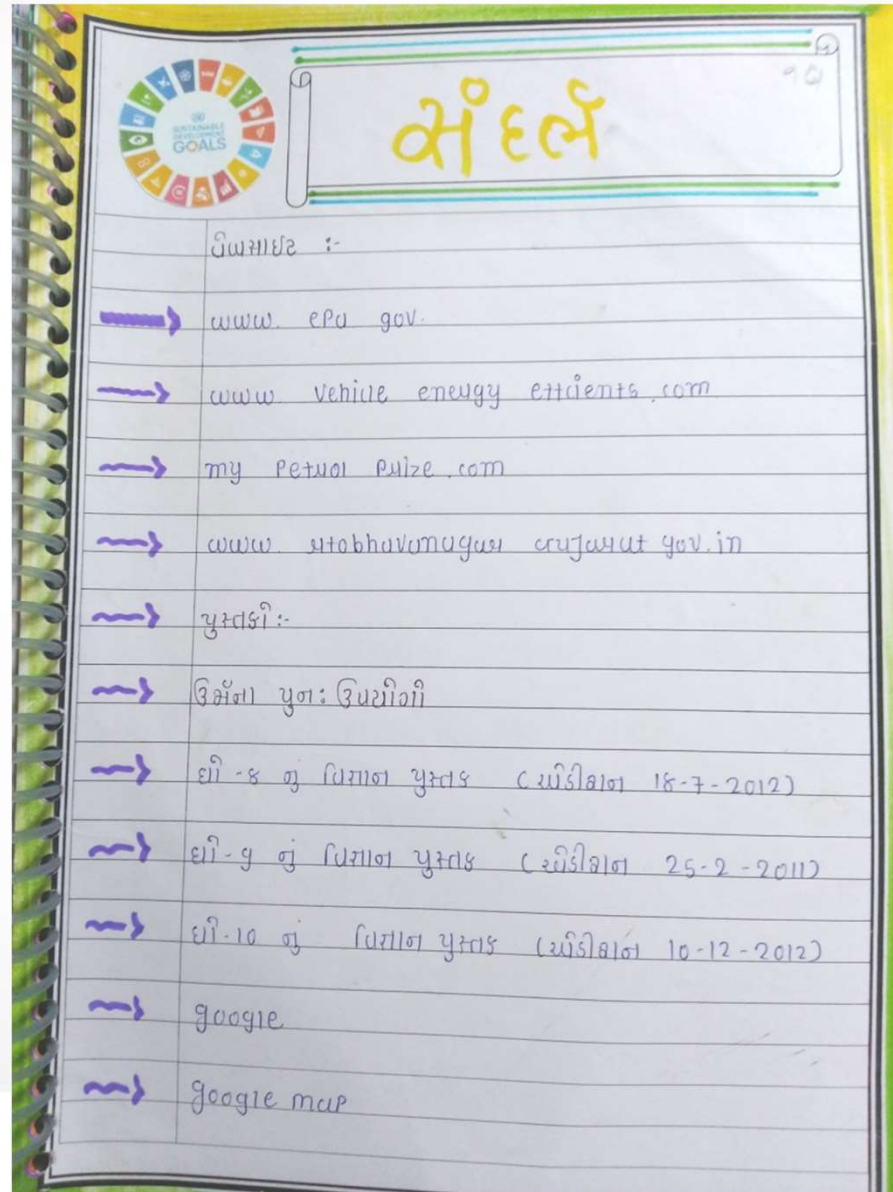 SUSTAINABLE
DEVELOPMENT
GOALS
સંદર્ભ
વેબસાઈટ :-
www. epa gov.
www vehicle energy efficients .com
my petrol prize .com
www. rtobhavanagar Gujarat gov.in
પુસ્તકો :-
ઉર્જાના પુનઃ ઉપયોગો
ધો -8 નું વિજ્ઞાન પુસ્તક (એડીશન 18-7-2012)
ધો -9 નું વિજ્ઞાન પુસ્તક (એડીશન 25-2-2011)
ધો -10 નું વિજ્ઞાન પુસ્તક (એડીશન 10-12-2012)
google
google map